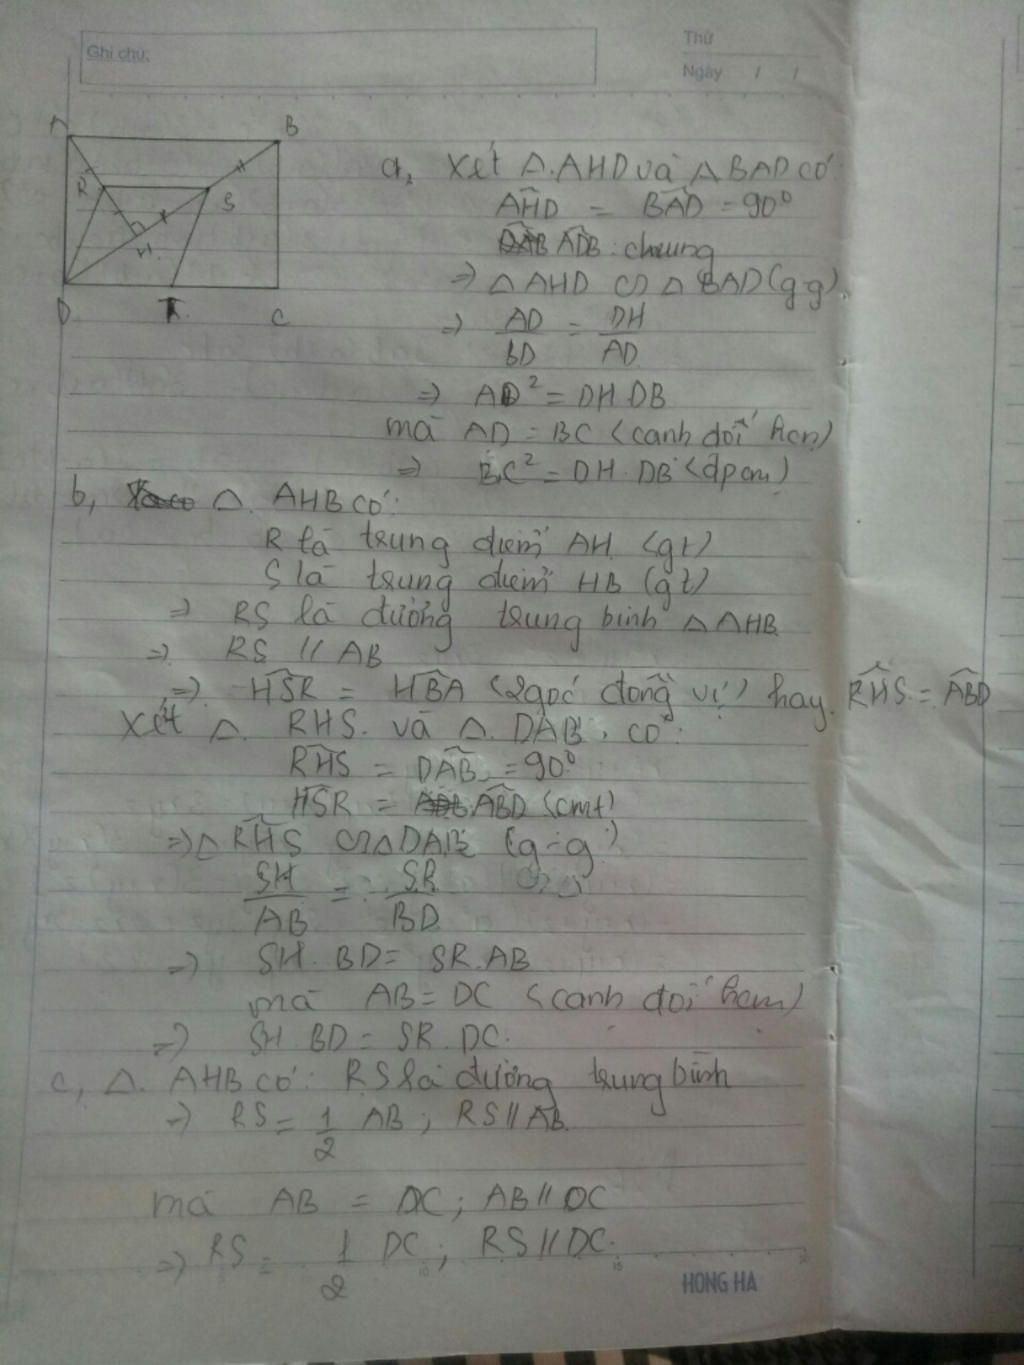 Ghi chú:
Thứ
Ngày / /
A
B
R
S
H
D
T
C
a, Xét △AHD và △BAD có:
AHD = BAD = 90°
ADB : chung
=> △AHD ∽ △BAD (g.g)
=> AD/BD = DH/AD
=> AD² = DH.DB
mà AD = BC (cạnh đối hcn)
=> BC² = DH.DB (dpcm)
b, △AHB có:
R là trung điểm AH (gt)
S là trung điểm HB (gt)
=> RS là đường trung bình △AHB
=> RS // AB
=> HSR = HBA (2 góc đồng vị) hay RHS = ABD
Xét △RHS và △DAB có:
RHS = DAB = 90°
HSR = ABD (cmt)
=> △RHS ∽ △DAB (g-g)
SH/AB = SR/BD
=> SH.BD = SR.AB
mà AB = DC (cạnh đối hcn)
=> SH.BD = SR.DC.
c, △AHB có: RS là đường trung bình
=> RS = 1/2 AB; RS // AB
mà AB = DC; AB // DC
=> RS = 1/2 DC; RS // DC.
HONG HA